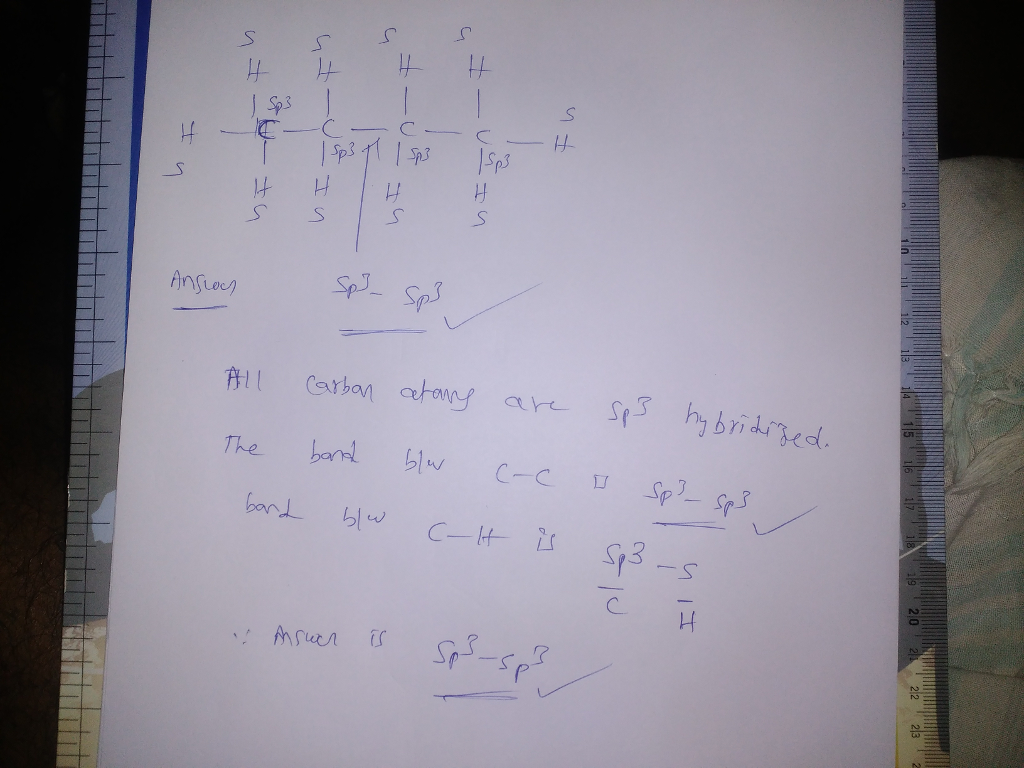 S S S S
H H H H
Sp3
H C C C C H S
S Sp3 Sp3 Sp3
H H H H
S S S S
Answer Sp3- Sp3
All carbon atoms are Sp3 hybridized.
The bond b/w C-C is Sp3-Sp3
bond b/w C-H is Sp3-S
C H
∵ Answer is Sp3-Sp3
10
12
13
14
15
16
17
18
19
20
21
22
23